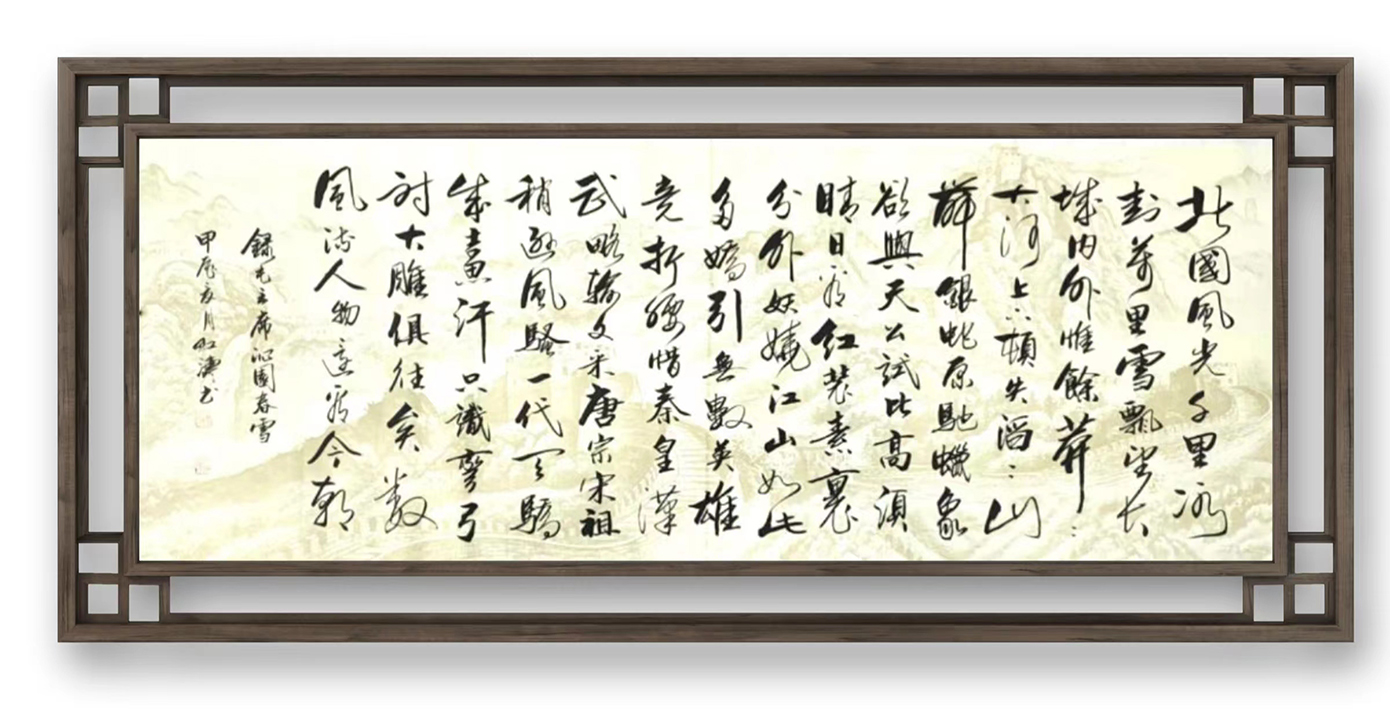 北國風光千里冰
封萬里雪飄望长
城内外惟餘莽〻
大河上下頓失滔〻山
舞銀蛇原馳蠟象
欲與天公試比高須
晴日看紅裝素裹
分外妖嬈江山如此
多嬌引無數英雄
竞折腰惜秦皇漢
武略輸文采唐宗宋祖
稍遜風騷一代天驕
成吉思汗只識彎弓
射大雕俱往矣數
風流人物還看今朝
錄毛主席沁園春雪
甲辰夏月書